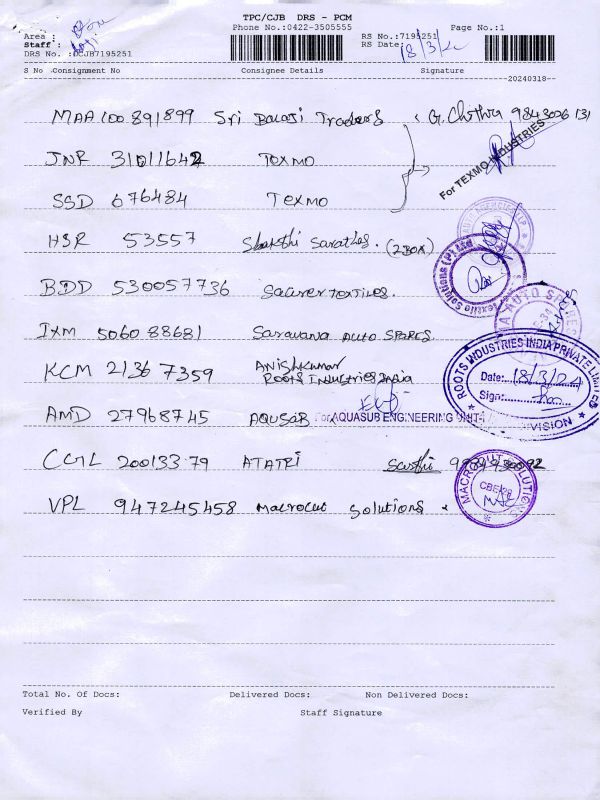 TPC/CJB DRS - PCM
Phone No.:0422-3505555 Page No.:1
Area : RS No.:7195251
Staff: RS Date: 18/3/24
DRS No. :DCJB7195251
S No Consignment No Consignee Details Signature
20240318
MAA 100 891899 Sri Balaji Traders G. Chithra 9843026 131
JNR 31011642 TOXMO
For TEXMO INDUSTRIES
SSD 676484 Texmo
HSR 53557 Shakthi Sarathes. (2 BOX)
BDD 530057736 Saurer TEXTILES.
IXM 5060 88681 Saravana AUTO SPARES
KCM 2136 7359 ANISHKUMAR
ROOTS INDUSTRIES India
ROOTS INDUSTRIES INDIA PRIVATE LIMITED
Date: 18/3/24
Sign:
DIVISION
AMD 27968745 AQUSUB For AQUASUB ENGINEERING UNIT-
CGL 200133 79 ATATRI
VPL 947245458 Macrocut Solutions
MACROCUT SOLUTIONS
Total No. Of Docs: Delivered Docs: Non Delivered Docs:
Verified By Staff Signature